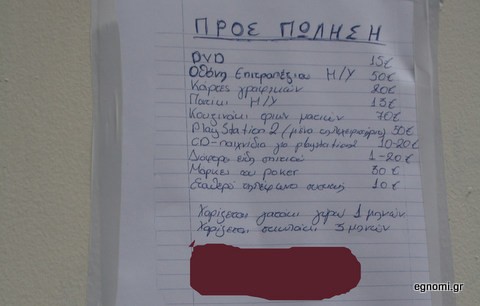 ΠΡΟΣ ΠΩΛΗΣΗ
DVD 15€
Οθόνη Επιτραπέζιου Η/Υ 50€
Κάρτες γραφικών 20€
Ποτίκι Η/Υ 15€
Κουζινάκι τριών ματιών 70€
PlayStation 2 (μόνο 50€
CD-παιχνίδια για playstation 10-20€
Διάφορα είδη σπιτιού 1-20€
Μάρκες του poker 30€
Σταθερό τηλέφωνο συσκευή 10€
Χαρίζεται γατάκι γύρω 1 μηνών
Χαρίζεται σκυλάκι 3 μηνών
egnomi.gr